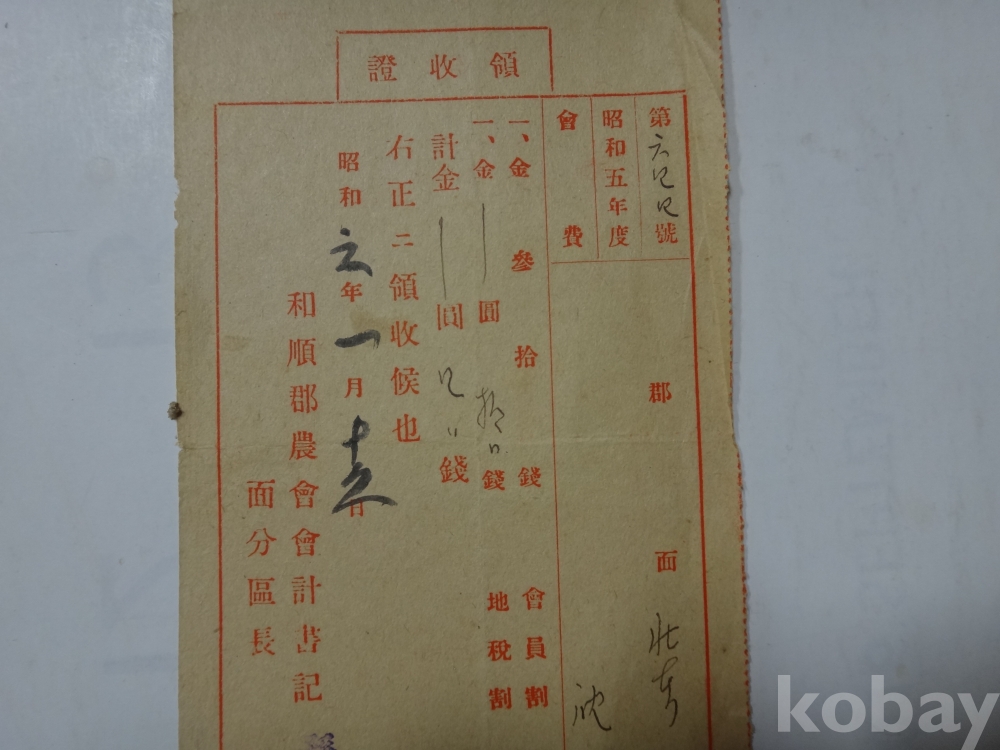 領收證
第六四四號
郡 面
昭和五年度
會費
一、金參拾錢 會員割
一、金 圓拾 錢 地稅割
計金 圓四 錢
右正ニ領收候也
昭和六年一月 日
和順郡農會會計書記
面分區長
kobay